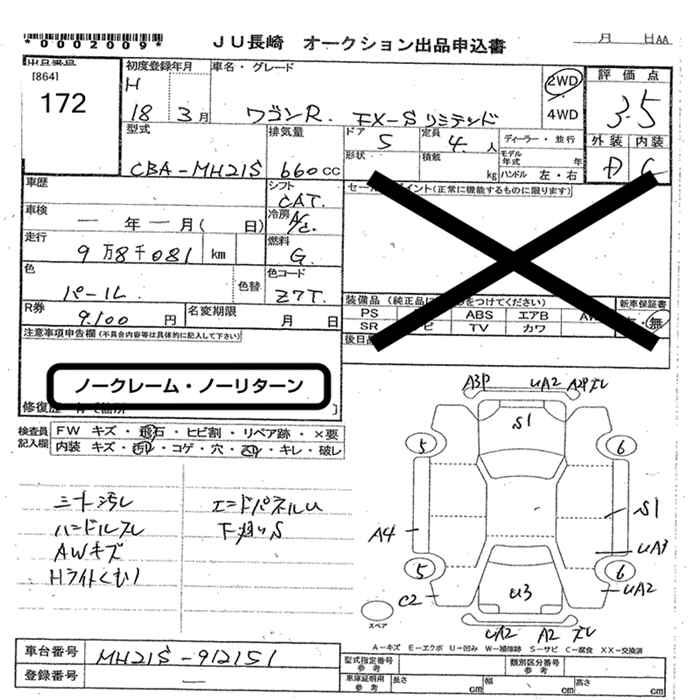 *0002009*
JU長崎 オークション出品申込書
月 日AA
[864]
172
初度登録年月
H
18 3月
車名・グレード
ワゴンR. FX-Sリミテッド
2WD
4WD
評価点
3.5
外装 内装
D C
型式
CBA-MH21S
排気量
660cc
ドア
5
定員
4.人
形状
積載
kg
ディーラー・並行
モデル年式 年
ハンドル 左・右
車歴
車検
一 年 一 月( 日)
走行
9万8千081 km
色
パール
色替
シフト
CAT.
冷房
A/C.
燃料
G.
色コード
Z7T.
R券
9.100 円
名変期限
月 日
イント(正常に機能するものに限ります)
装備品
をつけてください)
新車保証書
無
PS
ABS
エアB
SR
TV
カワ
後日
注意事項申告欄(不具合内容等は具体的に記入して下さい)
ノークレーム・ノーリターン
検査員記入欄
FW キズ・飛石・ヒビ割・リペア跡・×要
内装 キズ・汚れ・コゲ・穴・スレ・キレ・破し
シート汚レ
ハンドルスレ
AWキズ
Hライトくもり
エンドパネルU
下廻りS
A3P UA2
S1
5 6
A4
S1
UA3
5 6
C2
U3
UA2
UA2 A2 ズレ
スペア
A-キズ E-エクボ U-凹み W-補修跡 S-サビ C-腐食 XX-交換済
車台番号
MH21S-912151
登録番号
一
型式指定番号
参考
類別区分番号
参考
車庫証明用
参考
長さ cm
幅 cm
高さ cm